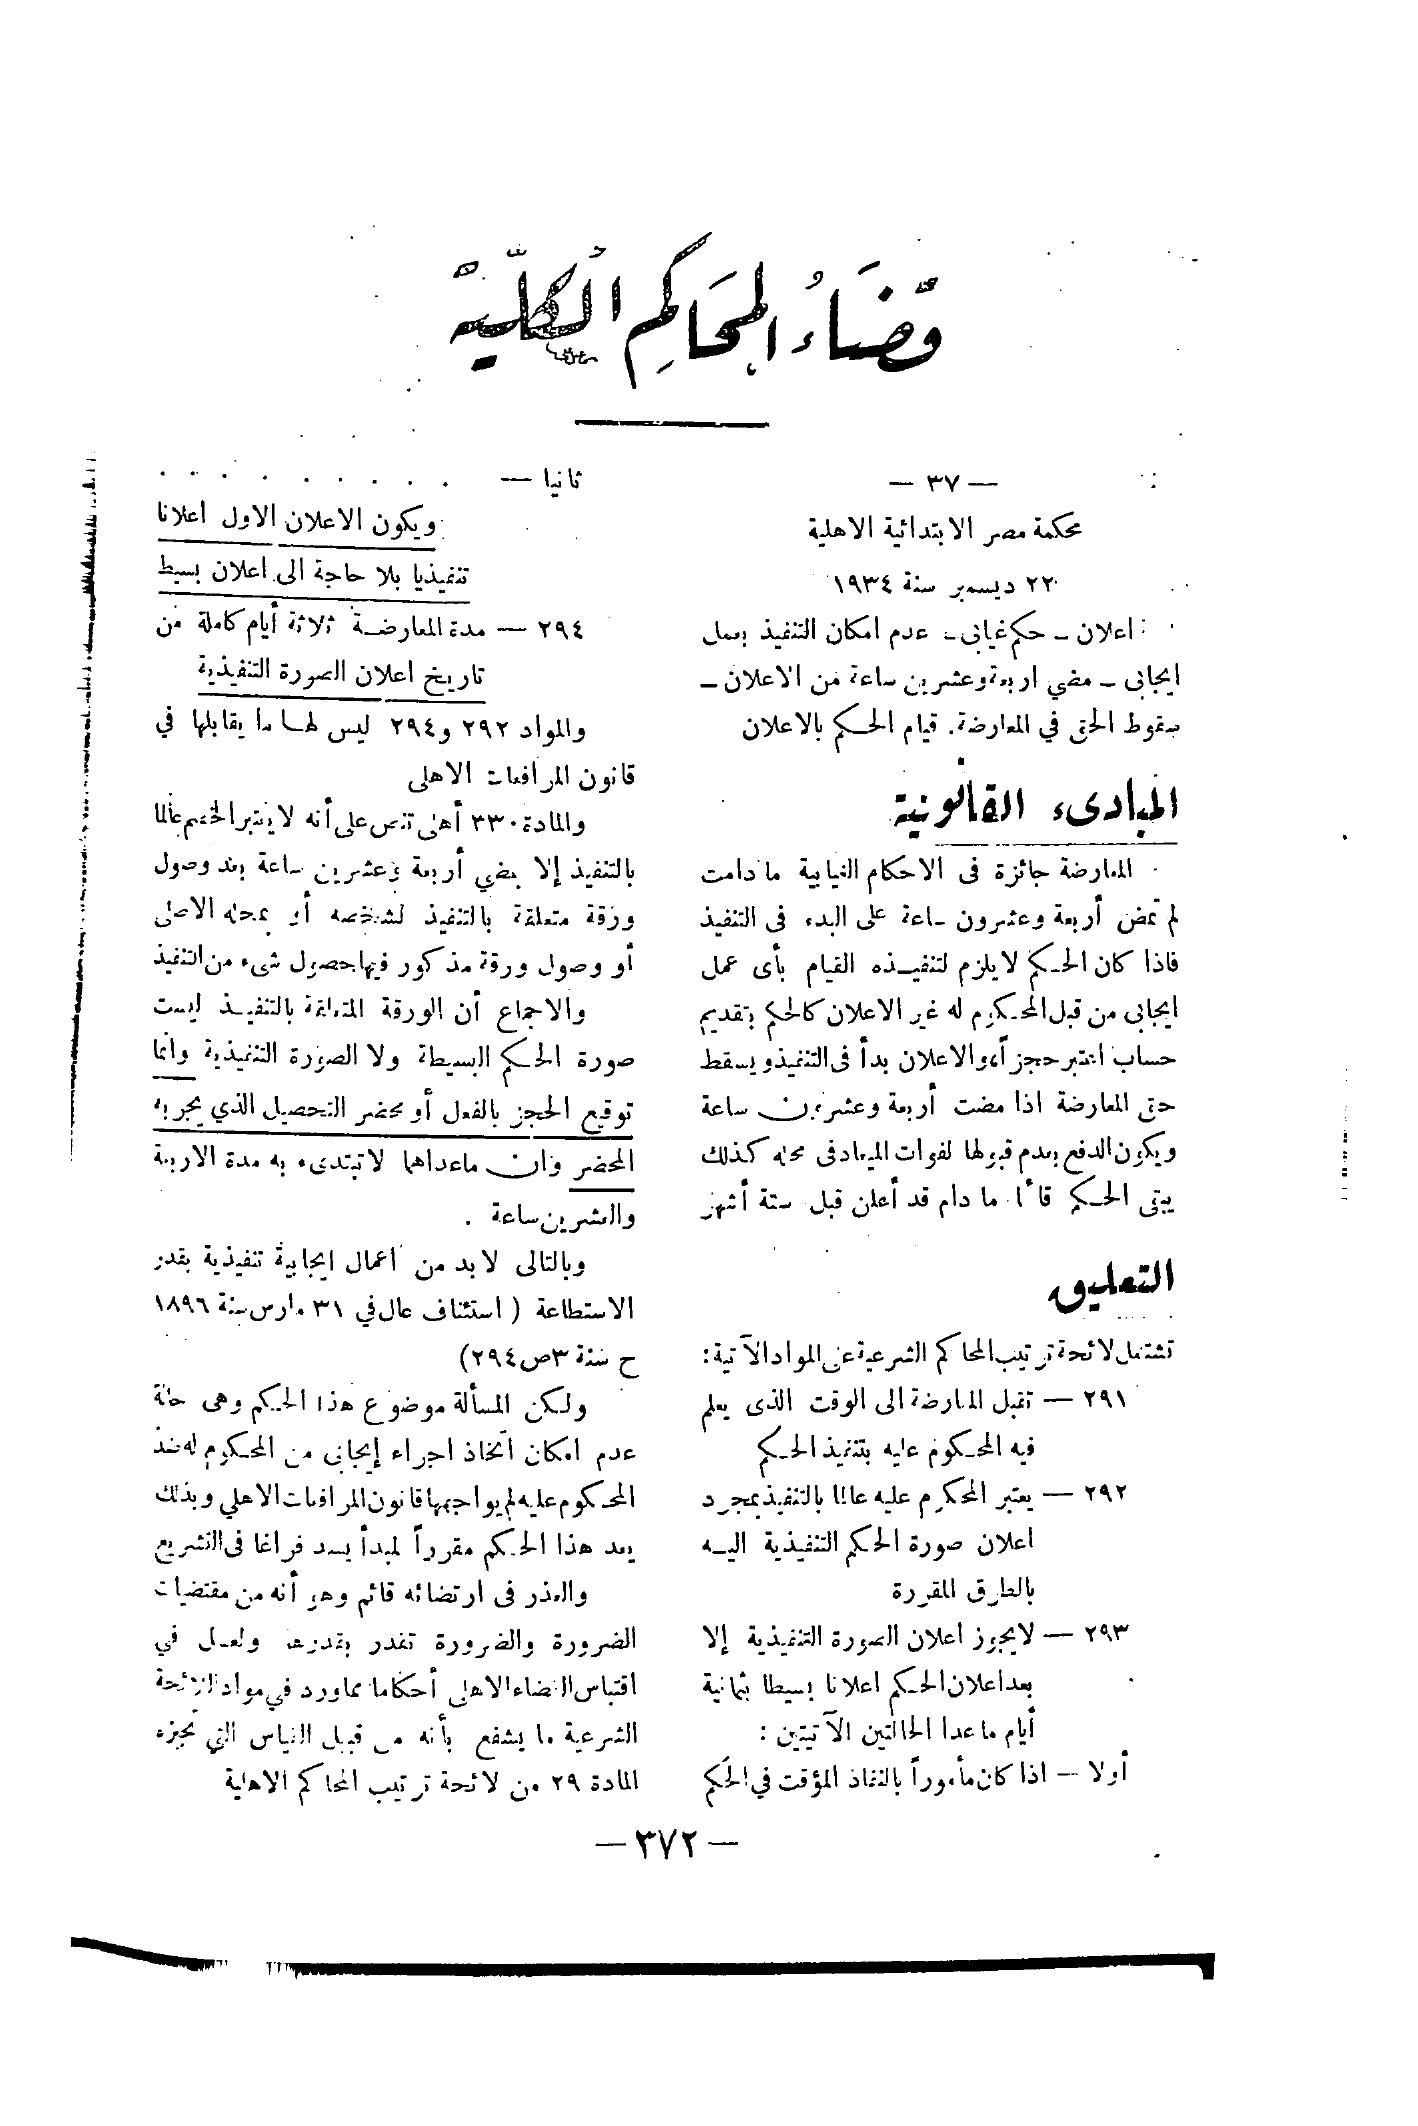 قضاء المحاكم الكلية
— ٣٧ —
محكمة مصر الابتدائية الاهلية
٢٢ ديسمبر سنة ١٩٣٤
اعلان – حكم غيابى – عدم امكان التنفيذ بعمل
ايجابى – مضي اربعة وعشرين ساعة من الاعلان –
سقوط الحق في المعارضة. قيام الحكم بالاعلان
المبادىء القانونية
المعارضة جائزة فى الاحكام الغيابية ما دامت
لم تمض أربعة وعشرون ساعة على البدء فى التنفيذ
فاذا كان الحكم لا يلزم لتنفيذه القيام بأى عمل
ايجابى من قبل المحكوم له غير الاعلان كالحكم بتقديم
حساب اعتبر حجزاً، والاعلان بدأ فى التنفيذ ويسقط
حق المعارضة اذا مضت أربعة وعشرين ساعة
ويكون الدفع بعدم قبولها لفوات الميعاد فى محله كذلك
يبقى الحكم قائما ما دام قد أعلن قبل ستة أشهر
التعليق
تشتمل لائحة ترتيب المحاكم الشرعية على المواد الآتية :
٢٩١ — تقبل المعارضة الى الوقت الذى يعلم
فيه المحكوم عليه بتنفيذ الحكم
٢٩٢ — يعتبر المحكوم عليه عالما بالتنفيذ بمجرد
اعلان صورة الحكم التنفيذية اليه
بالطرق المقررة
٢٩٣ — لا يجوز اعلان الصورة التنفيذية إلا
بعد اعلان الحكم اعلانا بسيطا بثمانية
أيام ما عدا الحالتين الآتيتين :
أولا — اذا كان مأموراً بالنفاذ المؤقت في الحكم
ثانيا — . . . . . . . . .
ويكون الاعلان الاول اعلانا
تنفيذيا بلا حاجة الى اعلان بسيط
٢٩٤ — مدة المعارضة ثلاثة أيام كاملة من
تاريخ اعلان الصورة التنفيذية
والمواد ٢٩٢ و٢٩٤ ليس لها ما يقابلها في
قانون المرافعات الاهلى
والمادة ٣٣٠ أهلى تنص على أنه لا يعتبر الخصم عالما
بالتنفيذ إلا بمضي أربعة وعشرين ساعة بعد وصول
ورقة متعلقة بالتنفيذ لشخصه أو بمحله الاصلى
أو وصول ورقة مذكور فيها حصول شىء من التنفيذ
والاجماع أن الورقة المتعلقة بالتنفيذ ليست
صورة الحكم البسيطة ولا الصورة التنفيذية وانما
توقيع الحجز بالفعل أو محضر التحصيل الذي يجريه
المحضر وان ما عداهما لا تبتدىء به مدة الاربعة
والعشرين ساعة .
وبالتالى لا بد من أعمال ايجابية تنفيذية بقدر
الاستطاعة ( استئناف عال في ٣١ مارس سنة ١٨٩٦
ح سنة ٣ ص ٢٩٤)
ولكن المسألة موضوع هذا الحكم وهى حالة
عدم امكان اتخاذ اجراء إيجابى من المحكوم له ضد
المحكوم عليه لم يواجهها قانون المرافعات الاهلي وبذلك
يعد هذا الحكم مقرراً لمبدأ يسد فراغا فى التشريع
والعذر فى ارتضائه قائم وهو أنه من مقتضيات
الضرورة والضرورة تقدر بقدرها ولعل في
اقتباس القضاء الاهلى أحكاما مما ورد في مواد اللائحة
الشرعية ما يشفع بأنه من قبيل القياس التي تجيزه
المادة ٢٩ من لائحة ترتيب المحاكم الاهلية
— ٣٧٢ —